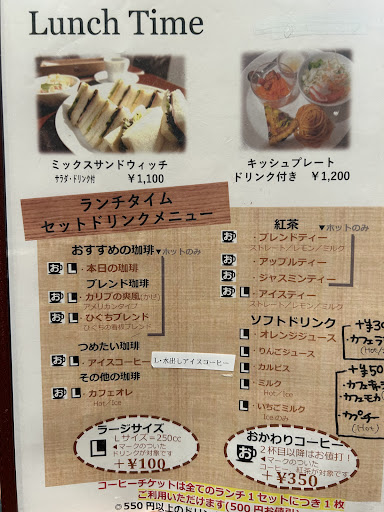 Lunch Time
ミックスサンドウィッチ
サラダ・ドリンク付 ￥1,100
キッシュプレート
ドリンク付き ￥1,200
ランチタイム
セットドリンクメニュー
おすすめの珈琲 ▼ホットのみ
お L ・本日の珈琲
ブレンド珈琲
お L ・カリブの爽風(かぜ)
アメリカンタイプ
お L ・ひぐちブレンド
ひぐちの看板ブレンド
つめたい珈琲
お L ・アイスコーヒー
L・水出しアイスコーヒー
その他の珈琲
L ・カフェオレ
Hot／Ice
ラージサイズ
L
Lサイズ=250cc
◀マークのついた
ドリンクが対象です
＋￥100
紅茶 ▼ホットのみ
お ・ブレンドティー
ストレート／レモン／ミルク
お ・アップルティー
お ・ジャスミンティー
お L ・アイスティー
ストレート／レモン／ミルク
ソフトドリンク
L ・オレンジジュース
L ・りんごジュース
L ・カルピス
L ・ミルク
Hot／Ice
L ・いちごミルク
Iceのみ
＋￥30
・カフェラ
(Hot/
＋￥50
・カフェキャラ
・カフェモカ
・カプチ
(Hot)
おかわりコーヒー
お
2杯目以降はお値打！
◀マークのついた
コーヒー・紅茶が対象です
＋￥350
コーヒーチケットは全てのランチ1セットにつき1枚
ご利用いただけます(550円お値引)
◎550円以上のドリン